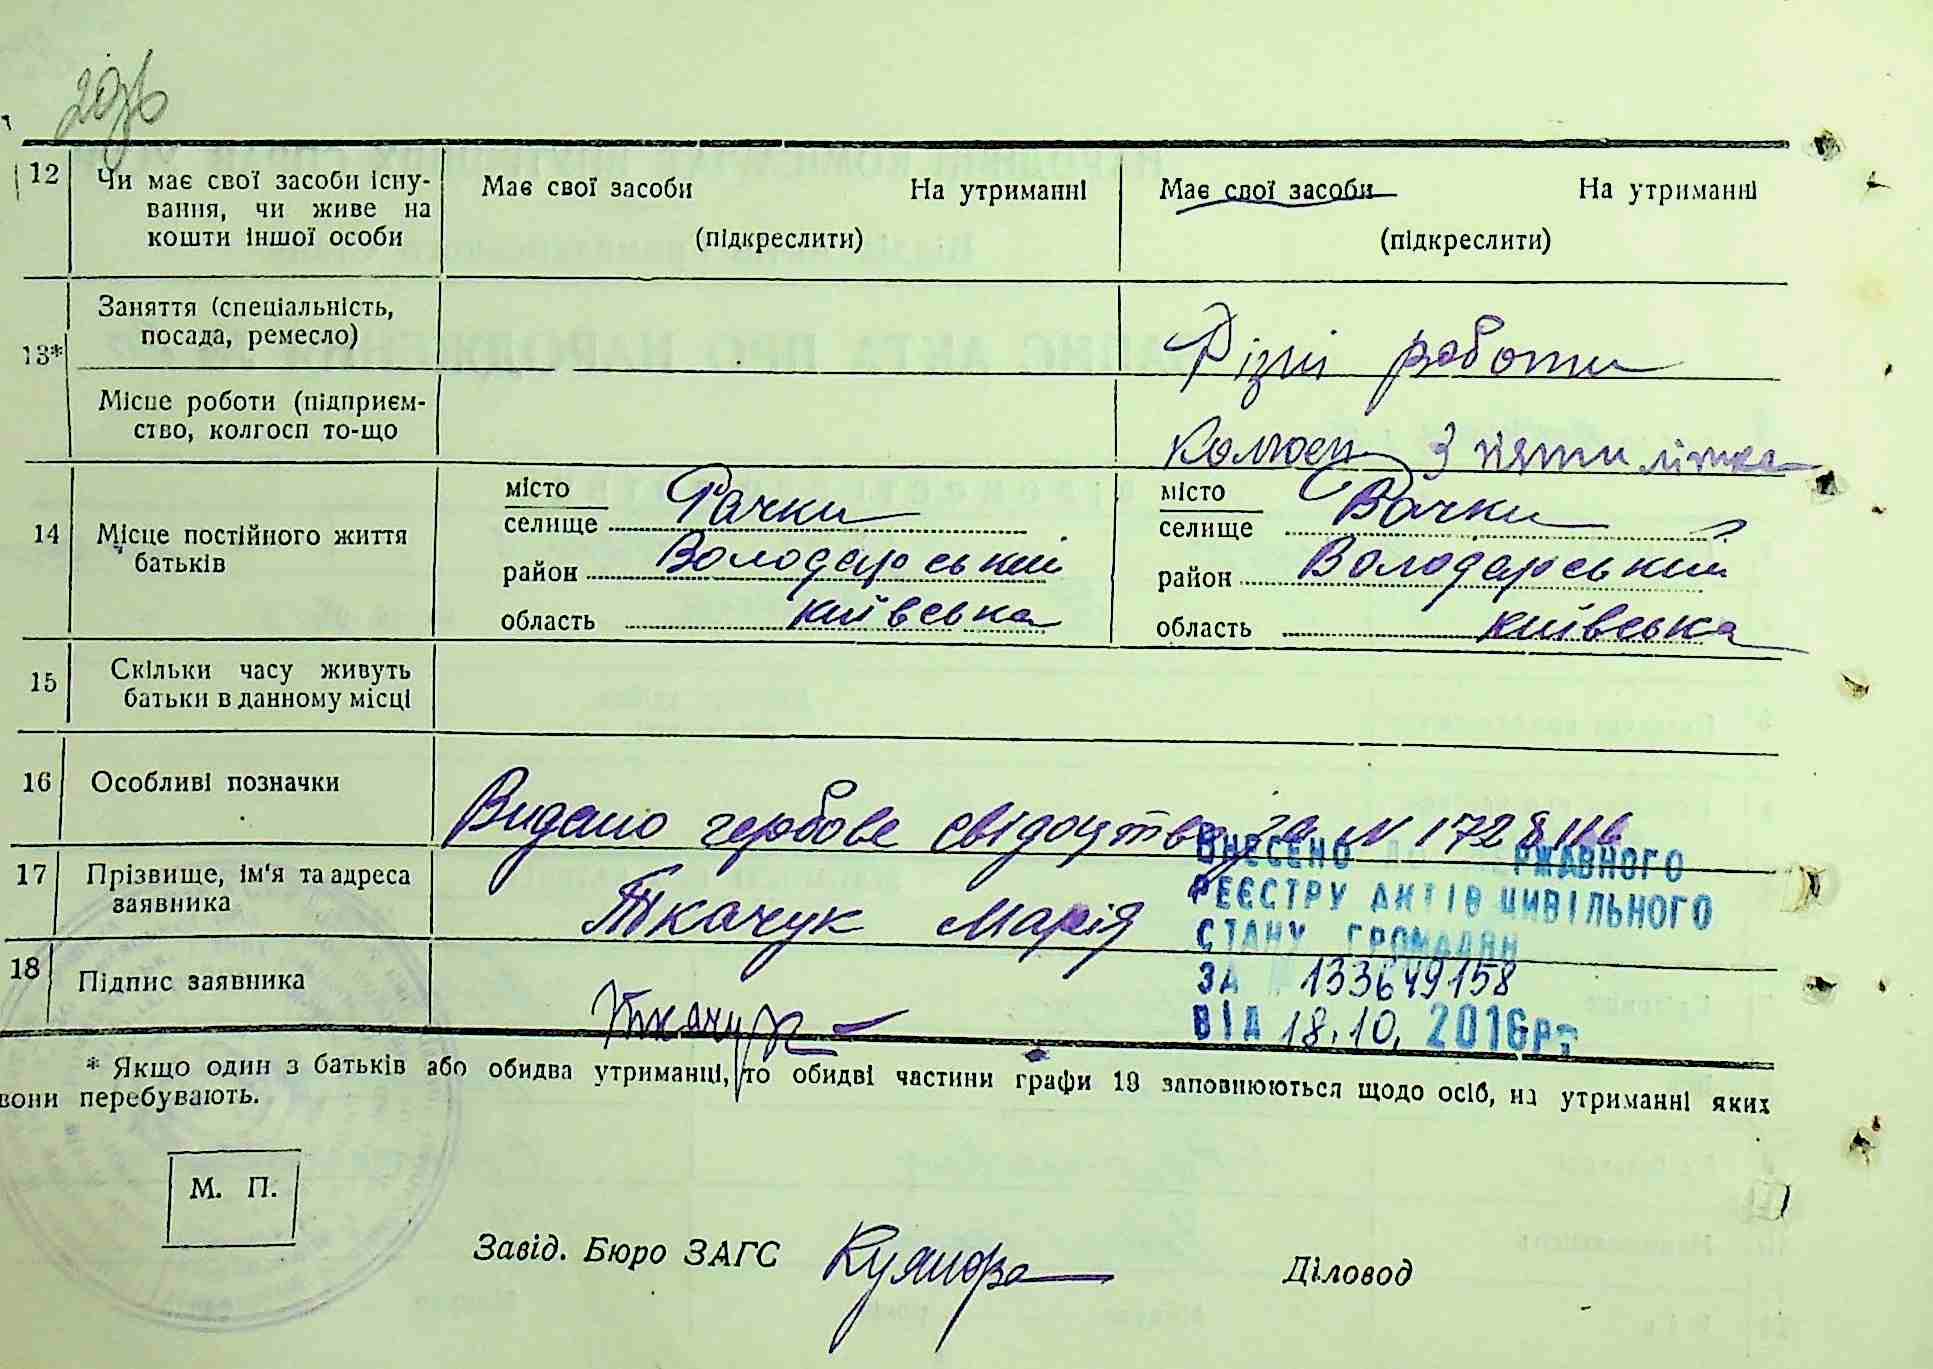 12 Чи має свої засоби існу-
вання, чи живе на
кошти іншої особи
Має свої засоби На утриманні
(підкреслити)
Має свої засоби На утриманні
(підкреслити)
13* Заняття (спеціальність,
посада, ремесло)
Різні роботи
Місце роботи (підприєм-
ство, колгосп то-що
Колгосп 3 п'яти літка
14 Місце постійного життя
батьків
місто
селище Рачки
район Володарський
область Київська
місто
селище Рачки
район Володарський
область Київська
15 Скільки часу живуть
батьки в данному місці
16 Особливі позначки
Видано гербове свідоцтво за N
17 Прізвище, ім'я та адреса
заявника
Ткачук Марія
ВНЕСЕНО ДО ДЕРЖАВНОГО
РЕЄСТРУ АКТІВ ЦИВІЛЬНОГО
СТАНУ ГРОМАДЯН
ЗА № 133649158
ВІД 18.10. 2016р.
18 Підпис заявника
Ткачук
* Якщо один з батьків або обидва утриманці, то обидві частини графи 13 заповнюються щодо осіб, на утриманні яких
вони перебувають.
М. П.
Завід. Бюро ЗАГС
Діловод